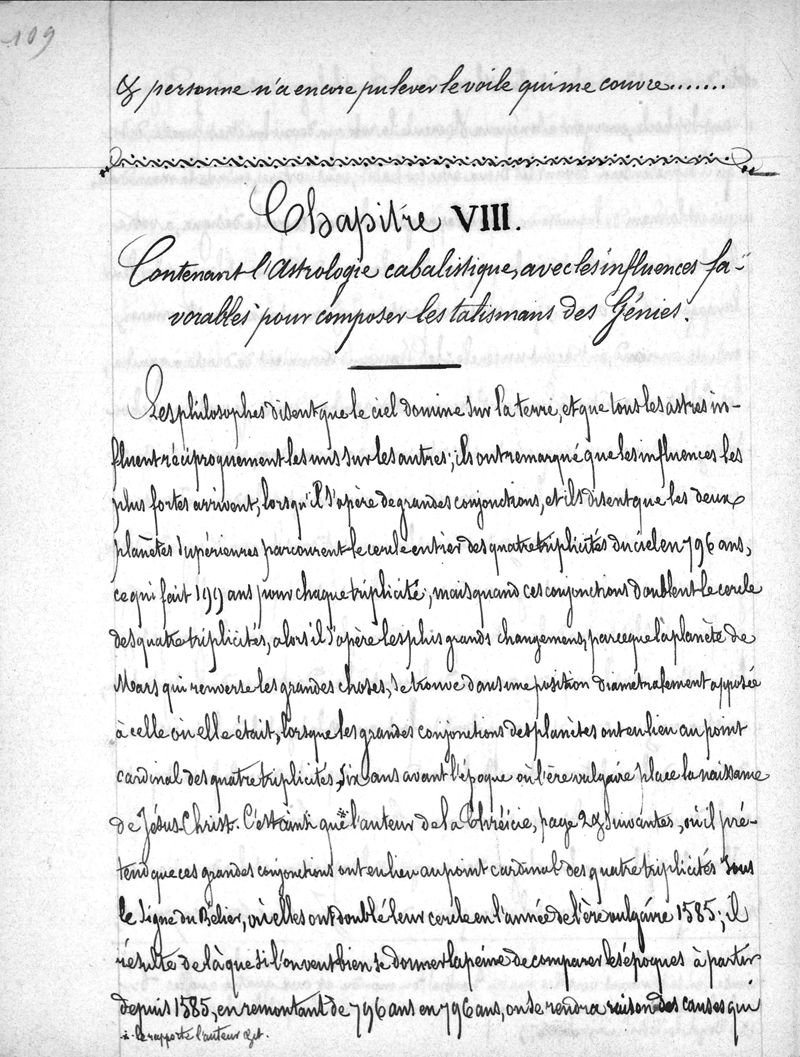 109
& personne n'a encore pu lever le voile qui me couvre.......
Chapitre VIII.
Contenant l'Astrologie cabalistique, avec les influences fa-
vorables pour composer les talismans des Génies.
Les philosophes disent que le ciel domine sur la terre, et que tous les astres in-
fluent réciproquement les uns sur les autres; ils ont remarqué que les influences les
plus fortes arrivent, lorsqu'il s'opère de grandes conjonctions, et ils disent que les deux
planètes supérieures parcourent le cercle entier des quatre triplicités du ciel en 796 ans,
ce qui fait 199 ans pour chaque triplicité, mais quand ces conjonctions doublent le cercle
des quatre triplicités, alors il s'opère les plus grands changemens, parceque la planète de
Mars qui renverse les grandes choses, se trouve dans une position diamétralement opposée
à celle où elle était, lorsque les grandes conjonctions des planètes ont eu lieu au point
cardinal des quatre triplicités, six ans avant l'époque où l'ère vulgaire place la naissance
de Jésus-Christ. C'est ainsi que* l'auteur de la Thréicie, page 2 & suivantes, où il pré-
tend que ces grandes conjonctions ont eu lieu au point cardinal des quatre triplicités sous
le signe du Bélier, où elles ont doublé leur cercle en l'année de l'ère vulgaire 1585; il
résulte de là que si l'on veut bien se donner la peine de comparer les époques à partir
depuis 1585, en remontant de 796 ans en 796 ans, on se rendra raison des causes qui
*- le rapporte l'auteur &ct.